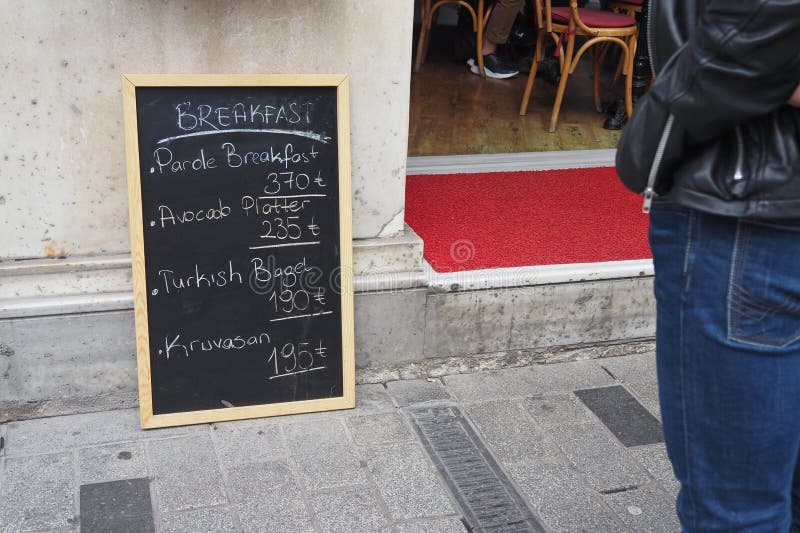 BREAKFAST
. Parole Breakfast
370 ₺
. Avocado Platter
235 ₺
. Turkish Bagel
190 ₺
. Kruvasan
195 ₺
dreamstime